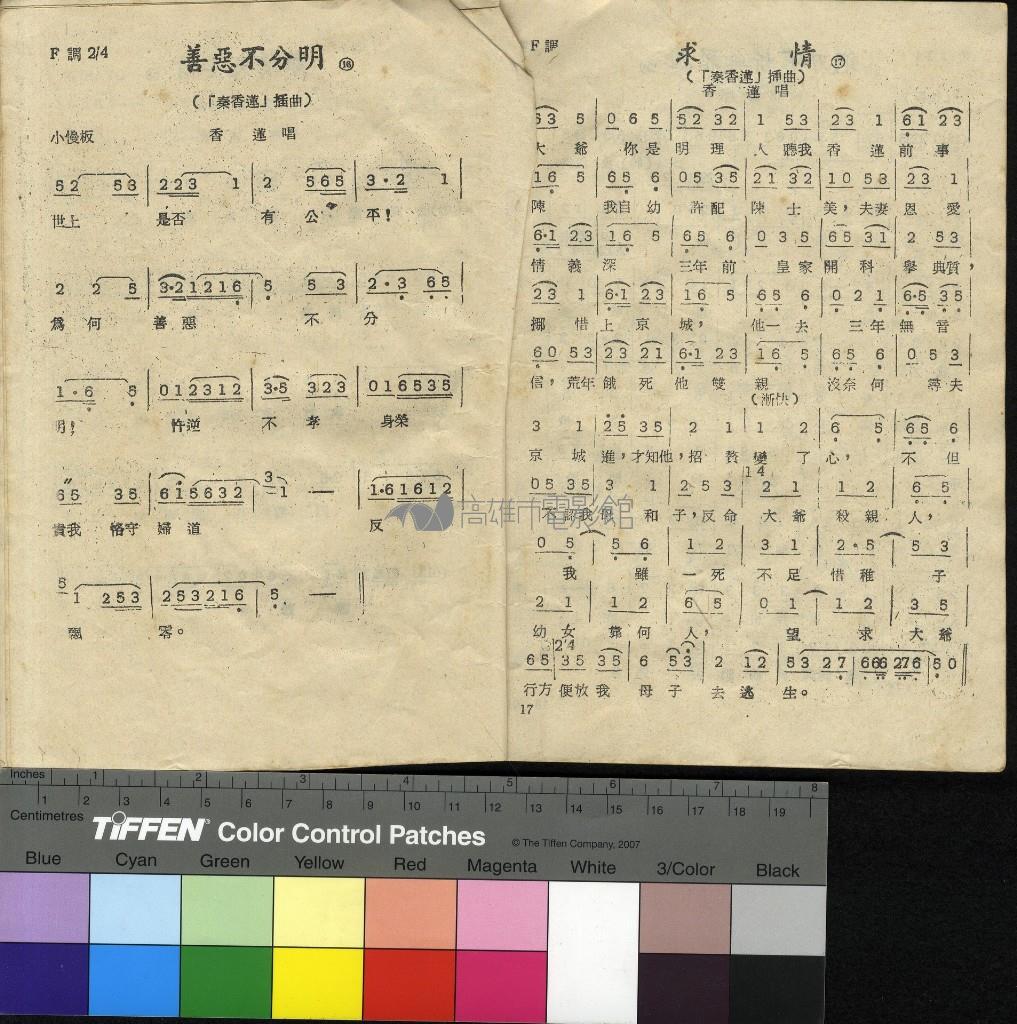 F 調 2/4
善惡不分明 ⑯
(「秦香蓮」插曲)
小慢板 香蓮唱
52 53 | 223 1 | 2 565 | 3·2 1 |
世上 是否 有 公 平!
2 2 5 | 3·21216 | 5 5 3 | 2·3 65 |
為 何 善 惡 不 分
1·6 5 | 012312 | 3·5 323 | 016535 |
明! 忤逆 不 孝 身榮
65 35 | 615632 | 3 1 — | 1·61612 |
貴我 恪守 婦 道 反
5 1 253 | 253216 | 5. — ||
飄 零。
F 調
求情 ⑰
(「秦香蓮」插曲)
香蓮唱
63 5 | 0 6 5 | 52 32 | 1 53 | 23 1 | 61 23
大 爺 你 是 明 理 人 聽我 香 蓮 前 事
16 5 | 65 6 | 05 35 | 21 32 | 10 53 | 23 1
陳 我自 幼 許 配 陳 士 美,夫妻 恩 愛
6·1 23 | 16 5 | 65 6 | 0 3 5 | 65 31 | 2 53
情 義 深 三年 前 皇 家 開 科 舉 典質,
23 1 | 6·1 23 | 16 5 | 65 6 | 0 2 1 | 6·5 35
挪 借 上 京 城, 他一 去 三 年 無 音
60 53 | 23 21 | 6·1 23 | 16 5 | 65 6 | 0 5 3
信,荒年 餓 死 他 雙 親 沒奈 何 尋 夫
(漸快)
3 1 | 25 35 | 2 1 | 1 2 | 6 5 | 65 6
京 城 進,才知他,招 贅 變 了 心, 不 但
1 4
05 35 | 3 1 | 2 5 3 | 2 1 | 1 2 | 6 5
不認我 和 子,反 命 大 爺 殺 親 人,
0 5 | 5 6 | 1 2 | 3 1 | 2·5 | 5 3
我 雖 一 死 不 足 惜 稚 子
2 1 | 1 2 | 6 5 | 0 1 | 1 2 | 3 5
幼 女 靠 何 人, 望 求 大 爺
2/4
65 | 35 35 | 6 53 | 2 12 | 53 27 | 666 276 | 50
行方 便放 我 母 子 去 逃 生。
17
高雄市電影館
Inches 1 2 3 4 5 6 7 8
Centimetres 1 2 3 4 5 6 7 8 9 10 11 12 13 14 15 16 17 18 19
TIFFEN® Color Control Patches © The Tiffen Company, 2007
Blue Cyan Green Yellow Red Magenta White 3/Color Black